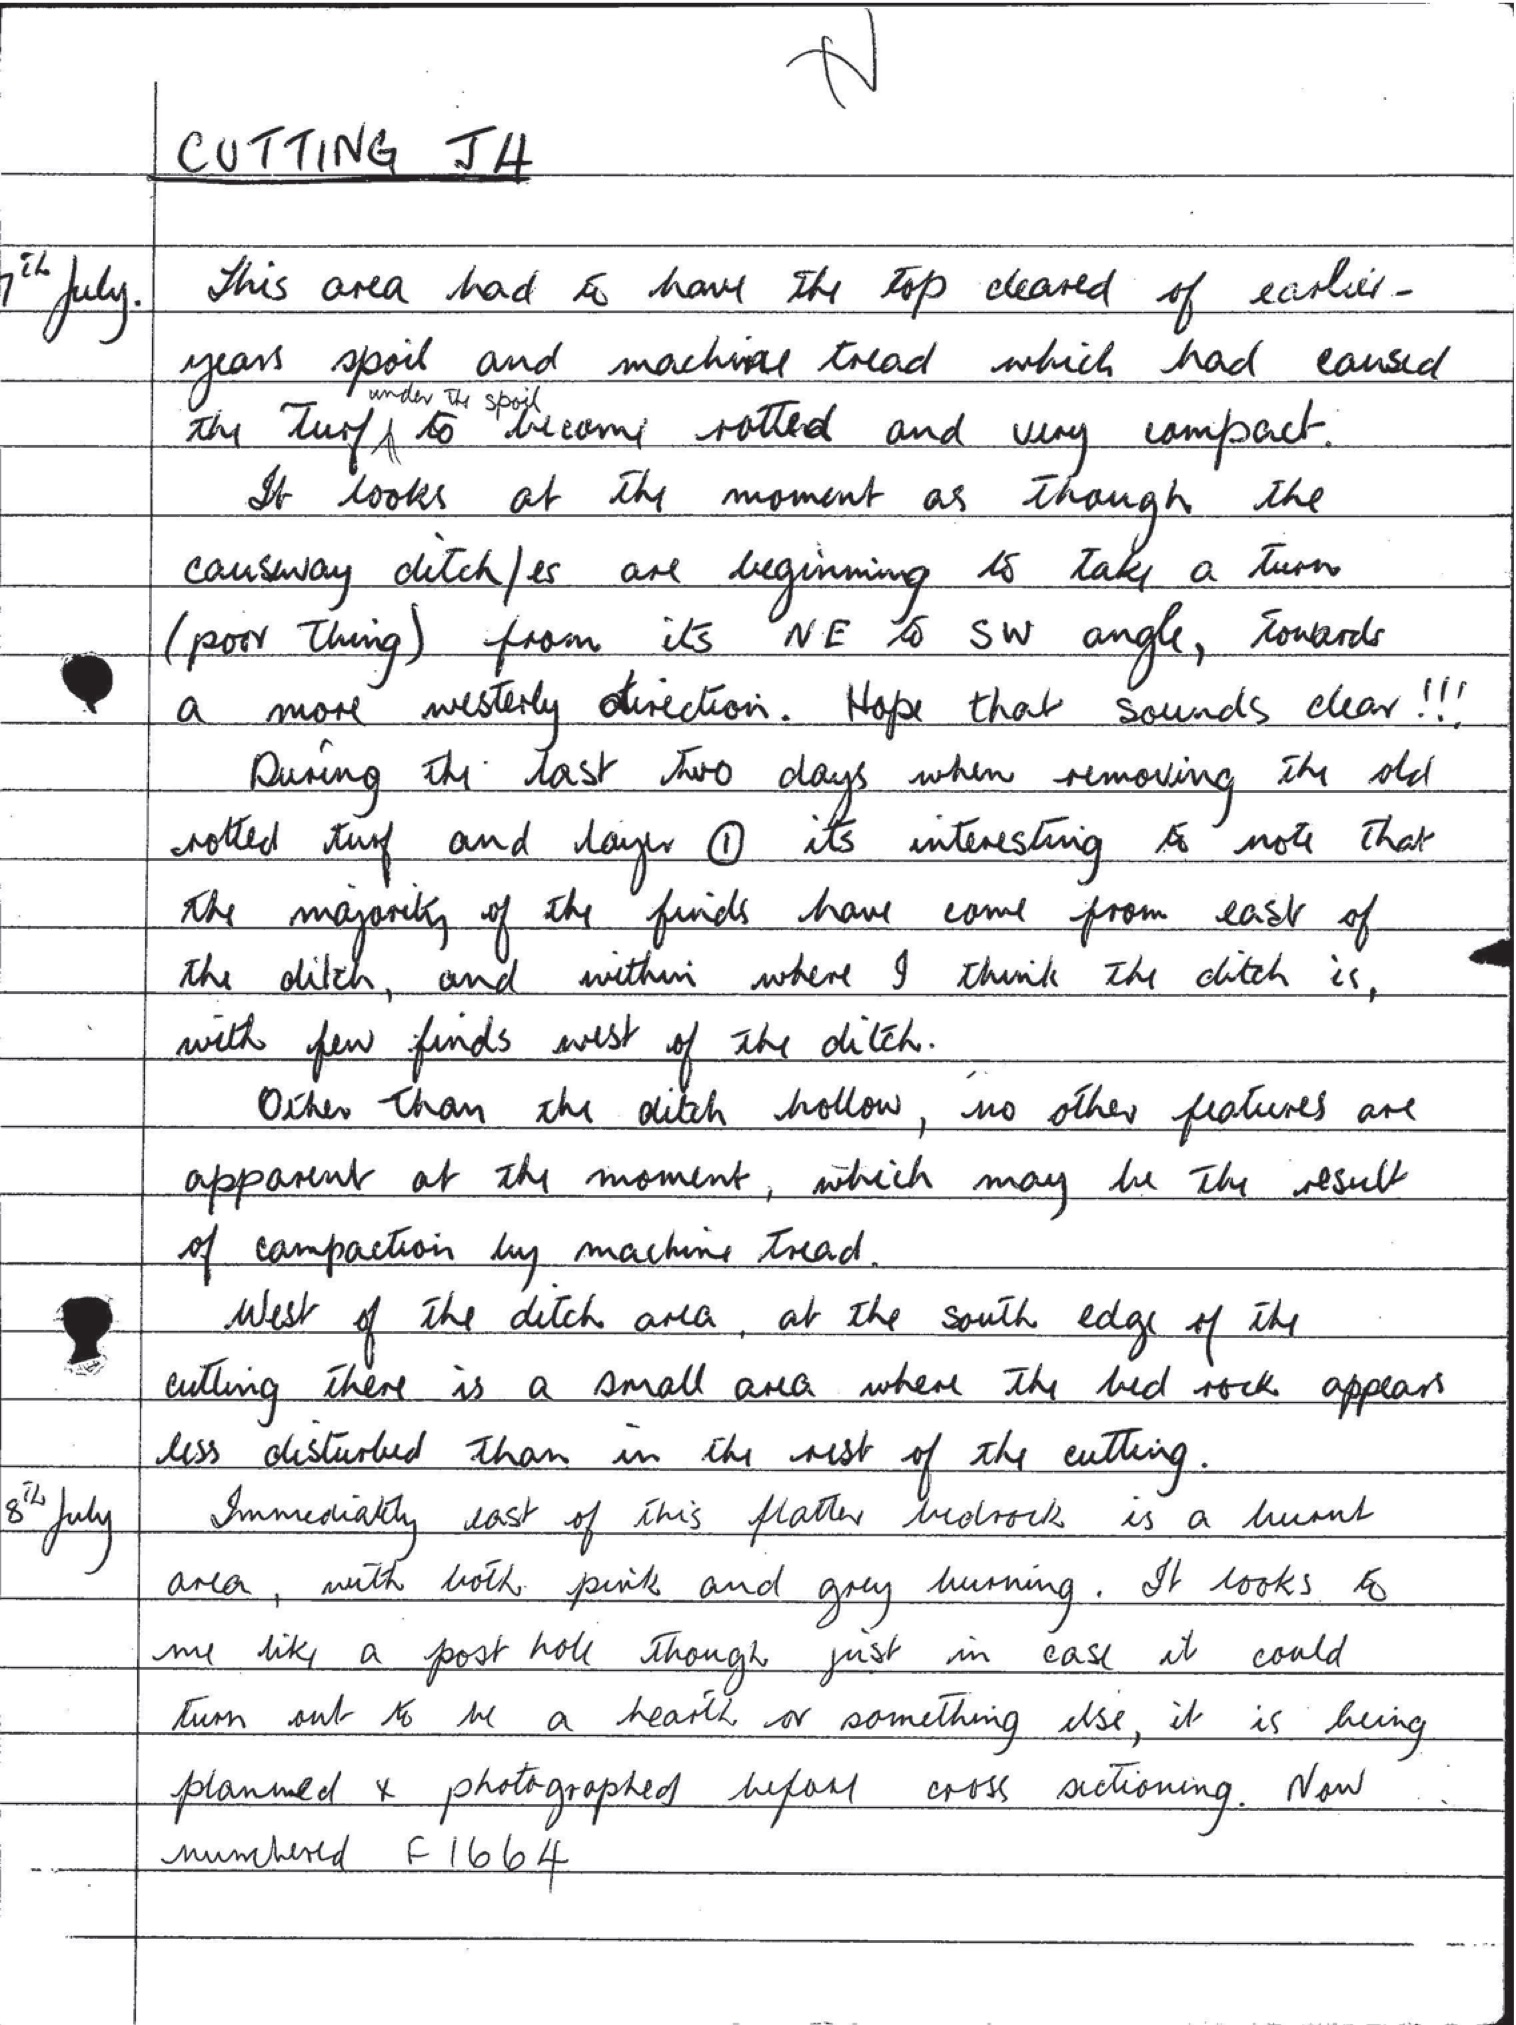 CUTTING J4
7th July. This area had to have the top cleared of earlier-
years spoil and machine tread which had caused
under the spoil
the turf to become rotted and very compact.
It looks at the moment as though the
causeway ditch/es are beginning to take a turn
(poor thing) from its NE to SW angle, towards
a more westerly direction. Hope that sounds clear!!!
During the last two days when removing the old
rotted turf and layer ① its interesting to note that
the majority of the finds have come from east of
the ditch, and within where I think the ditch is,
with few finds west of the ditch.
Other than the ditch hollow, no other features are
apparent at the moment, which may be the result
of compaction by machine tread.
West of the ditch area, at the south edge of the
cutting there is a small area where the bed rock appears
less disturbed than in the rest of the cutting.
8th July Immediatly east of this flatter bedrock is a burnt
area, with both pink and grey burning. It looks to
me like a post hole though just in case it could
turn out to be a hearth or something else, it is being
planned & photographed before cross sectioning. Now
numbered F1664